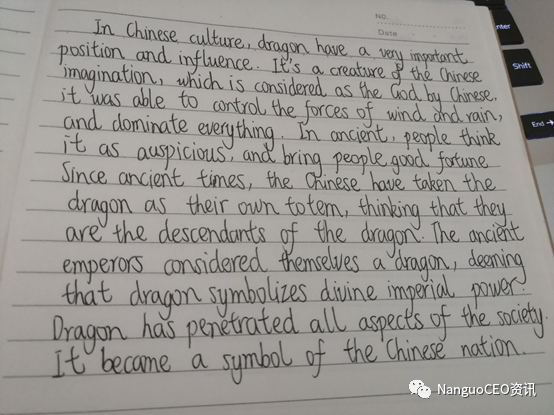 NO.
Date
In Chinese culture, dragon have a very important
position and influence. It's a creature of the Chinese
imagination, which is considered as the God by Chinese.
it was able to control the forces of wind and rain,
and dominate everything. In ancient, people think
it as auspicious, and bring people good fortune
Since ancient times, the Chinese have taken the
dragon as their own totem, thinking that they
are the descendants of the dragon. The ancient
emperors considered themselves a dragon, deeming
that dragon symbolizes divine imperial power.
Dragon has penetrated all aspects of the society.
It became a symbol of the Chinese nation.
nter
Shift
End
NanguoCEO资讯